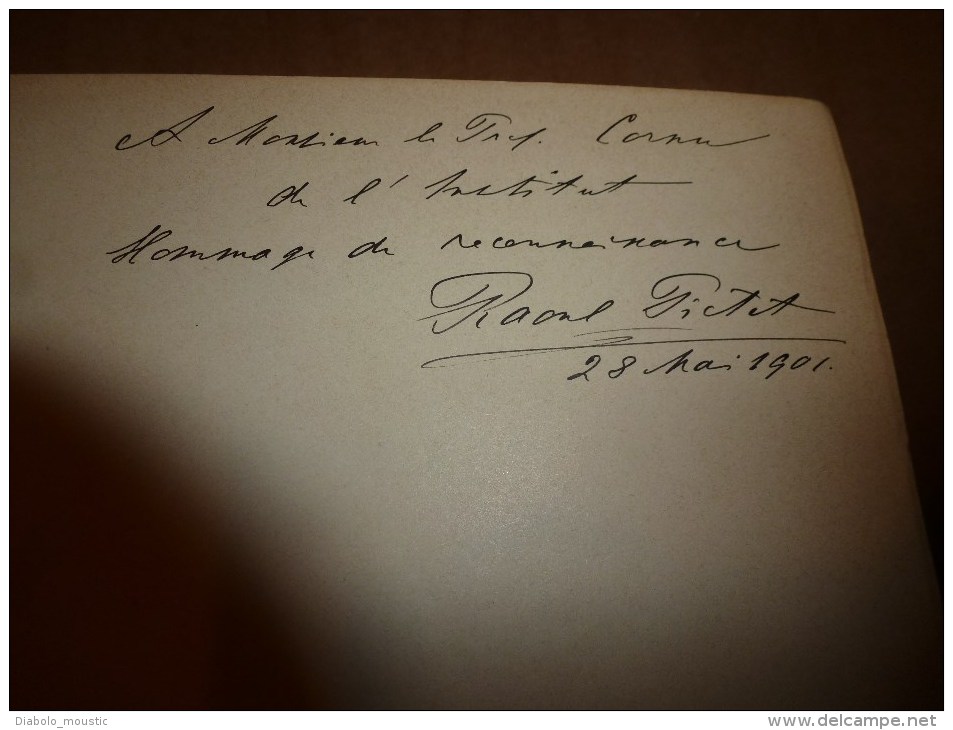 A Monsieur le Prof. Cornu
de l'Institut
Hommage de reconnaissance
Raoul Pictet
28 Mai 1901.
Diabolo_moustic
www.delcampe.net